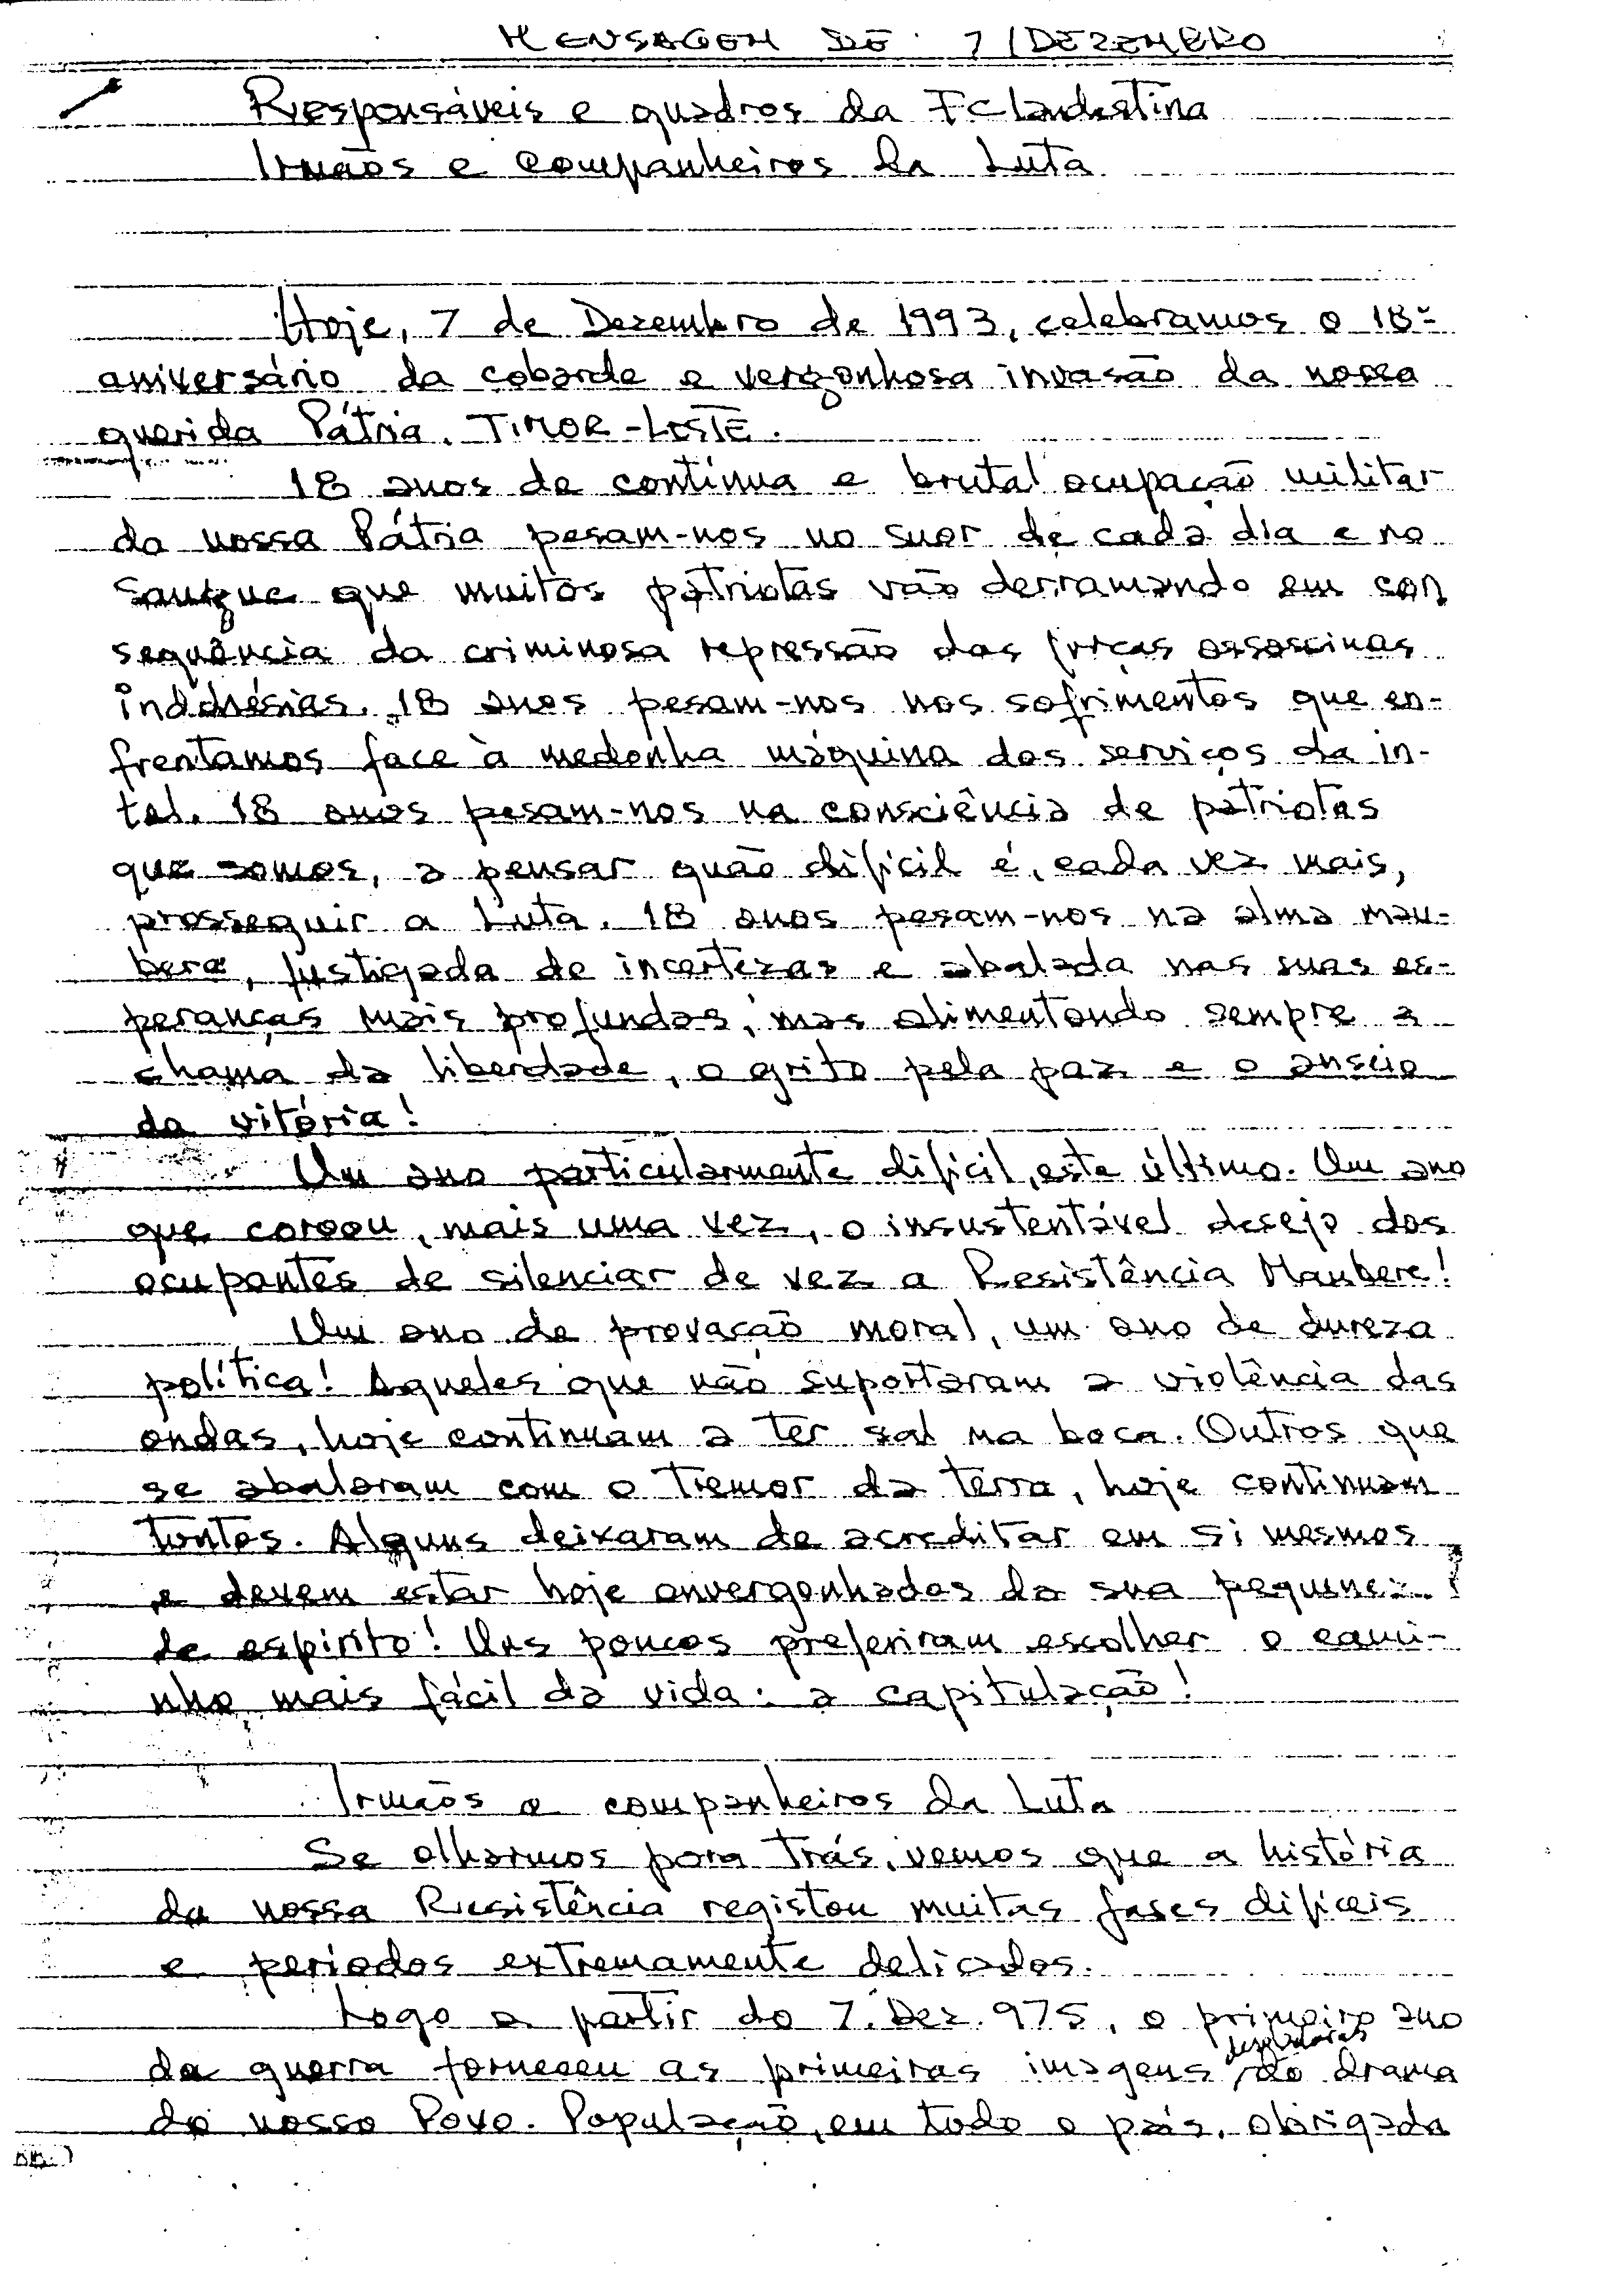 MENSAGEM DE 7/DEZEMBRO
Responsáveis e quadros da FClandestina
Irmãos e companheiros da Luta
Hoje, 7 de Dezembro de 1993, celebramos o 18º
aniversário da cobarde e vergonhosa invasão da nossa
querida Pátria, TIMOR-LESTE.
18 anos de contínua e brutal ocupação militar
da nossa Pátria pesam-nos no suor de cada dia e no
sangue que muitos patriotas vão derramando em con
sequência da criminosa repressão das forças assassinas
indonésias. 18 anos pesam-nos nos sofrimentos que en-
frentamos face à medonha máquina dos serviços da in-
tel. 18 anos pesam-nos na consciência de patriotas
que somos, a pensar quão difícil é, cada vez mais,
prosseguir a Luta. 18 anos pesam-nos na alma mau-
bere, fustigada de incertezas e abalada nas suas es-
peranças mais profundas, mas alimentando sempre a
chama da liberdade, o grito pela paz e o anseio
da vitória!
Um ano particularmente difícil, este último. Um ano
que coroou, mais uma vez, o insustentável desejo dos
ocupantes de silenciar de vez a Resistência Maubere!
Um ano de provação moral, um ano de dureza
política! Aqueles que não suportaram a violência das
ondas, hoje continuam a ter sal na boca. Outros que
se abalaram com o tremor da terra, hoje continuam
tontos. Alguns deixaram de acreditar em si mesmos
e devem estar hoje envergonhados da sua pequenez
de espírito! Uns poucos preferiram escolher o cami-
nho mais fácil da vida: a capitulação!
Irmãos e companheiros da Luta
Se olharmos para trás, vemos que a história
da nossa Resistência registou muitas fases difíceis
e períodos extremamente delicados.
Logo a partir do 7.Dez.975, o primeiro ano
da guerra forneceu as primeiras imagens desoladoras do drama
do nosso Povo. População, em todo o país, obrigada